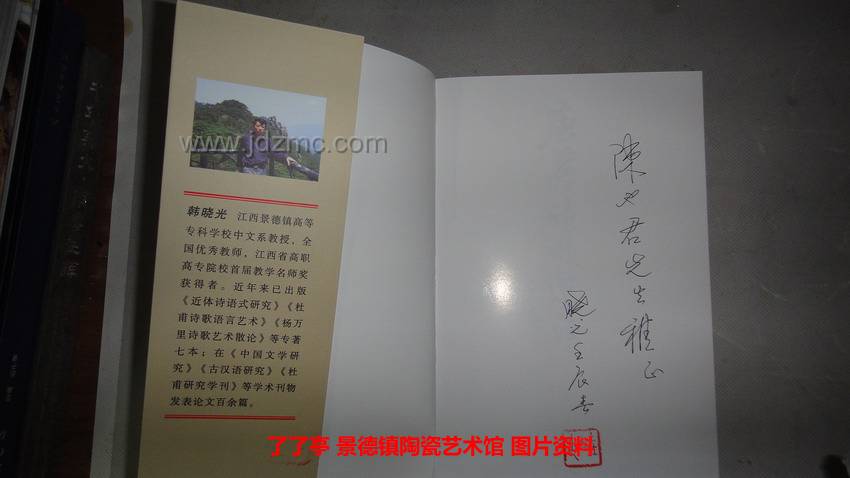 www.jdzmc.com
韩晓光 江西景德镇高等
专科学校中文系教授，全
国优秀教师，江西省高职
高专院校首届教学名师奖
获得者。近年来已出版
《近体诗语式研究》《杜
甫诗歌语言艺术》《杨万
里诗歌艺术散论》等专著
七本；在《中国文学研
究》《古汉语研究》《杜
甫研究学刊》等学术刊物
发表论文百余篇。
君先生雅正
晓光壬辰春
了了亭 景德镇陶瓷艺术馆 图片资料